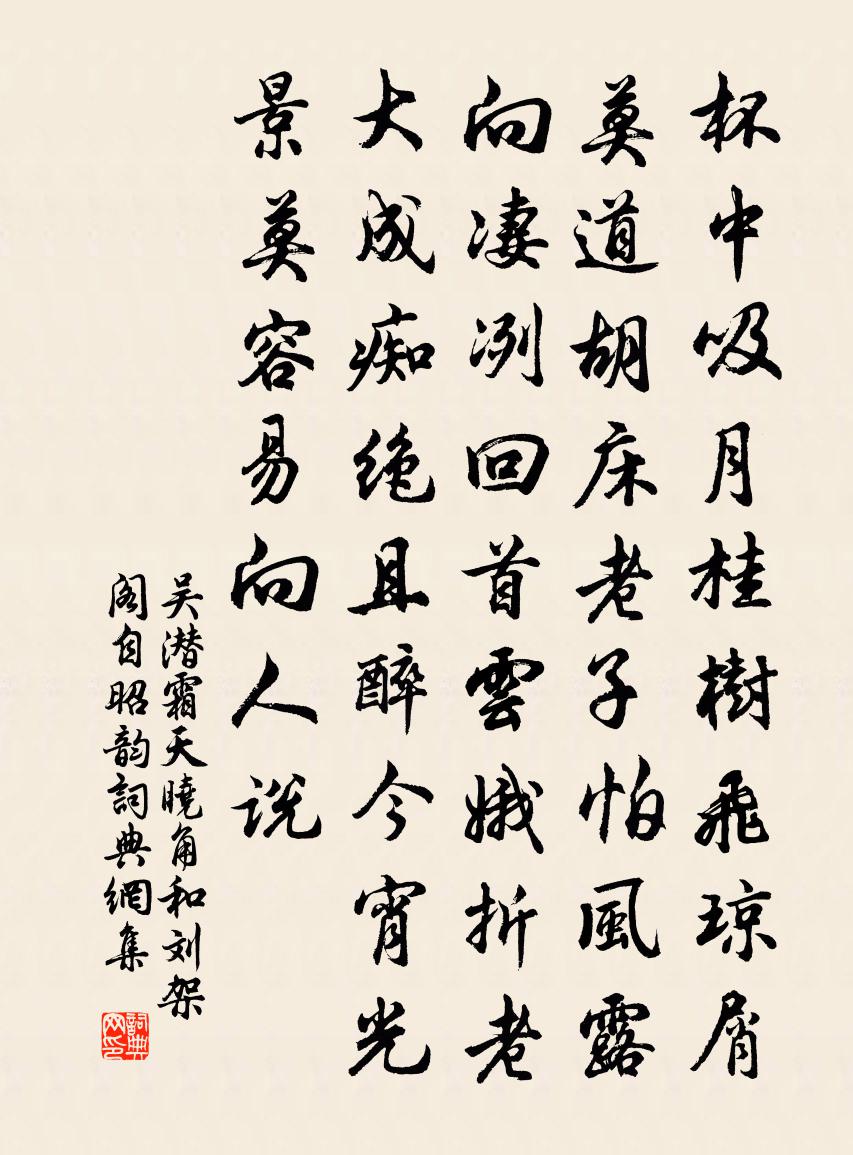 杯中吸月桂樹飛琼屑
莫道胡床老子怕風露
向凄冽回首雲娥折老
大成痴絶且醉今宵光
景莫容易向人说
吴潜霜天曉角和刘架
阁自昭韵詞典網集
詞典网印